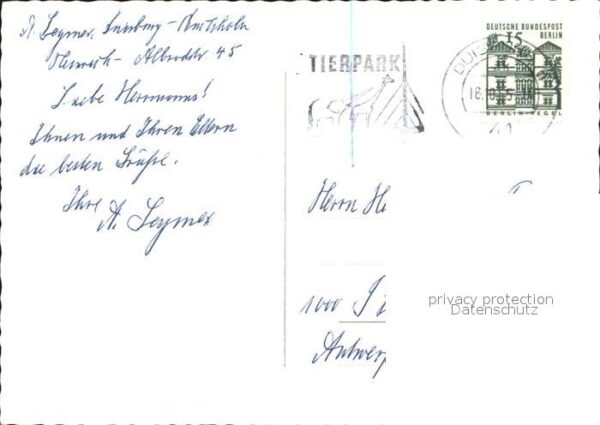 A. Legmer, Duisburg-
Heinrich- Albrodtstr 45
Liebe Herrmanns!
Ihnen und Ihren Eltern
die besten Grüße.
Ihre
A. Legmer
TIERPARK
DEUTSCHE BUNDESPOST
BERLIN
15
BERLIN-TEGEL
DUI
18
41
Herrn He
1000
Antwerp
privacy protection
Datenschutz